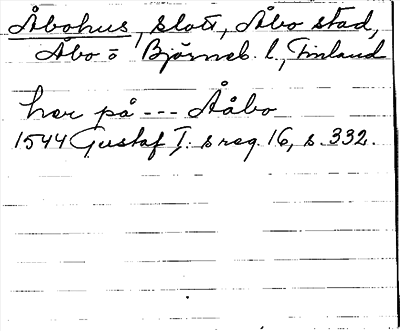 Åbohus, slott, Åbo stad,
Åbo o Björneb. l., Finland
her på --- Ååbo
1544 Gustaf I:s reg. 16, s. 332.